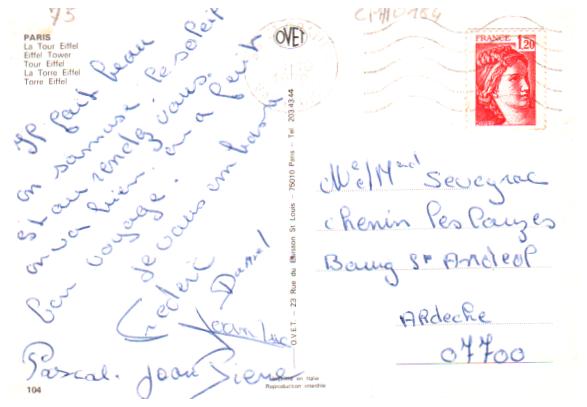 75
CPA10184
PARIS
La Tour Eiffel
Eiffel Tower
Tour Eiffel
La Torre Eiffel
Torre Eiffel
OVET
FRANCE
1,20
Il fait beau
on samuse. le soleil
St au rendez vous.
on va bien. on a fait
bon voyage.
Je vous embrasse
Frédéric
Daniel
Jean Luc
Pascal. Jean Pierre
O.V.E.T. - 23 Rue du Buisson St Louis - 75010 Paris - Tel. 203.43.44
Me et/Mr Seveyrac
chemin Les Cauzes
Bourg St Andeol
ARdeche
07700
104
en Italie
Reproduction interdite